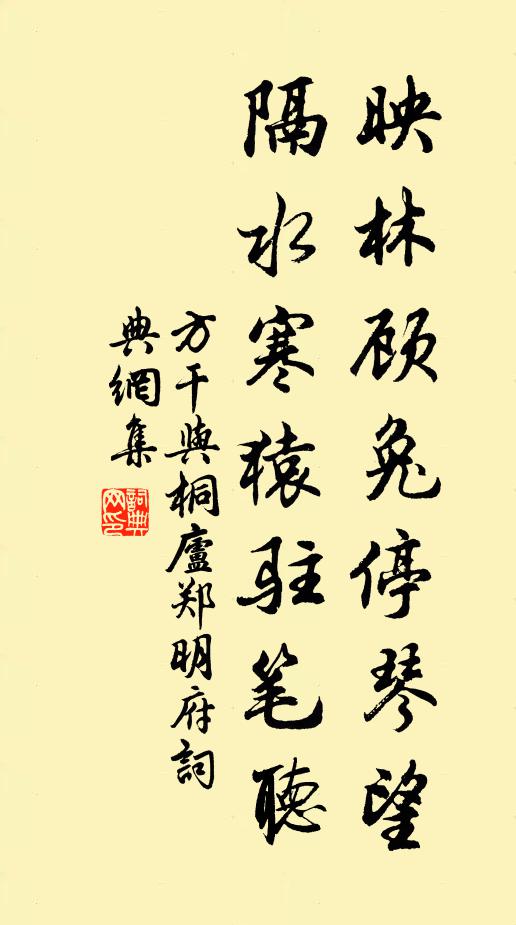 映林顾兔停琴望
隔水寒猿驻笔聽
方干與桐廬郑明府詞
典網集
詞典
网印